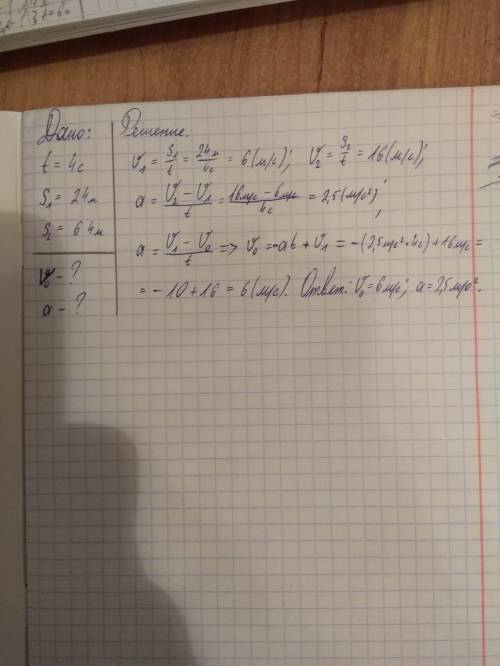 Дано:
t = 4с
S₁ = 24м
S₂ = 64м
V₀ - ?
a - ?
Решение.
V₁ = S₁/t = 24м/4с = 6(м/с); V₂ = S₂/t = 16(м/с);
a = (V₂ - V₁)/t = (16м/с - 6м/с)/4с = 2,5(м/с²);
a = (V₁ - V₀)/t => V₀ = -at + V₁ = -(2,5м/с²·4с) + 16м/с =
= -10 + 16 = 6(м/с). Ответ: V₀ = 6м/с; a = 2,5м/с².